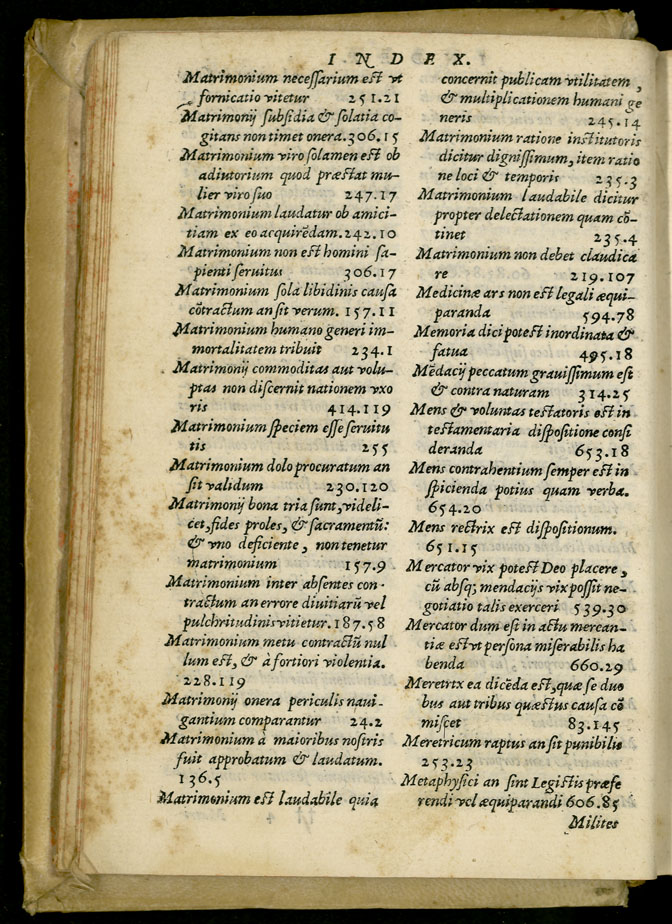 INDEX.
Matrimonium necessarium est vt
fornicatio vitetur 251.21
Matrimonij subsidia & solatia co-
gitans non timet onera. 306.15
Matrimonium viro solamen est ob
adiutorium quod præstat mu-
lier viro suo 247.17
Matrimonium laudatur ob amici-
tiam ex eo acquirẽdam. 242.10
Matrimonium non est homini sa-
pienti seruitus 306.17
Matrimonium sola libidinis causa
cõtractum an sit verum. 157.11
Matrimonium humano generi im-
mortalitatem tribuit 234.1
Matrimonij commoditas aut volu-
ptas non discernit nationem vxo
ris 414.119
Matrimonium speciem esse seruitu
tis 255
Matrimonium dolo procuratum an
sit validum 230.120
Matrimonij bona tria sunt, videli-
cet, fides proles, & sacramentũ:
& vno deficiente, non tenetur
matrimonium 157.9
Matrimonium inter absentes con-
tractum an errore diuitiarũ vel
pulchritudinis vitietur. 187.58
Matrimonium metu contractũ nul
lum est, & à fortiori violentia.
228.119
Matrimonij onera periculis naui-
gantium comparantur 24.2
Matrimonium à maioribus nostris
fuit approbatum & laudatum.
136.5
Matrimonium est laudabile quia
concernit publicam vtilitatem,
& multiplicationem humani ge
neris 245.14
Matrimonium ratione institutoris
dicitur dignissimum, item ratio
ne loci & temporis 235.3
Matrimonium laudabile dicitur
propter delectationem quam cõ-
tinet 235.4
Matrimonium non debet claudica
re 219.107
Medicinæ ars non est legali æqui-
paranda 594.78
Memoria dici potest inordinata &
fatua 495.18
Mẽdacij peccatum grauissimum est
& contra naturam 314.25
Mens & voluntas testatoris est in
testamentaria dispositione consi
deranda 653.18
Mens contrahentium semper est in
spicienda potius quam verba.
654.20
Mens rectrix est dispositionum.
651.15
Mercator vix potest Deo placere,
cũ absq; mendacijs vix possit ne-
gotiatio talis exerceri 539.30
Mercator dum est in actu mercan-
tiæ est vt persona miserabilis ha
benda 660.29
Meretrix ea dicẽda est, quæ se duo
bus aut tribus quæstus causa cõ
miscet 83.145
Meretricum raptus an sit punibilis
253.23
Metaphysici an sint Legistis præfe
rendi vel æquiparandi 606.85
Milites